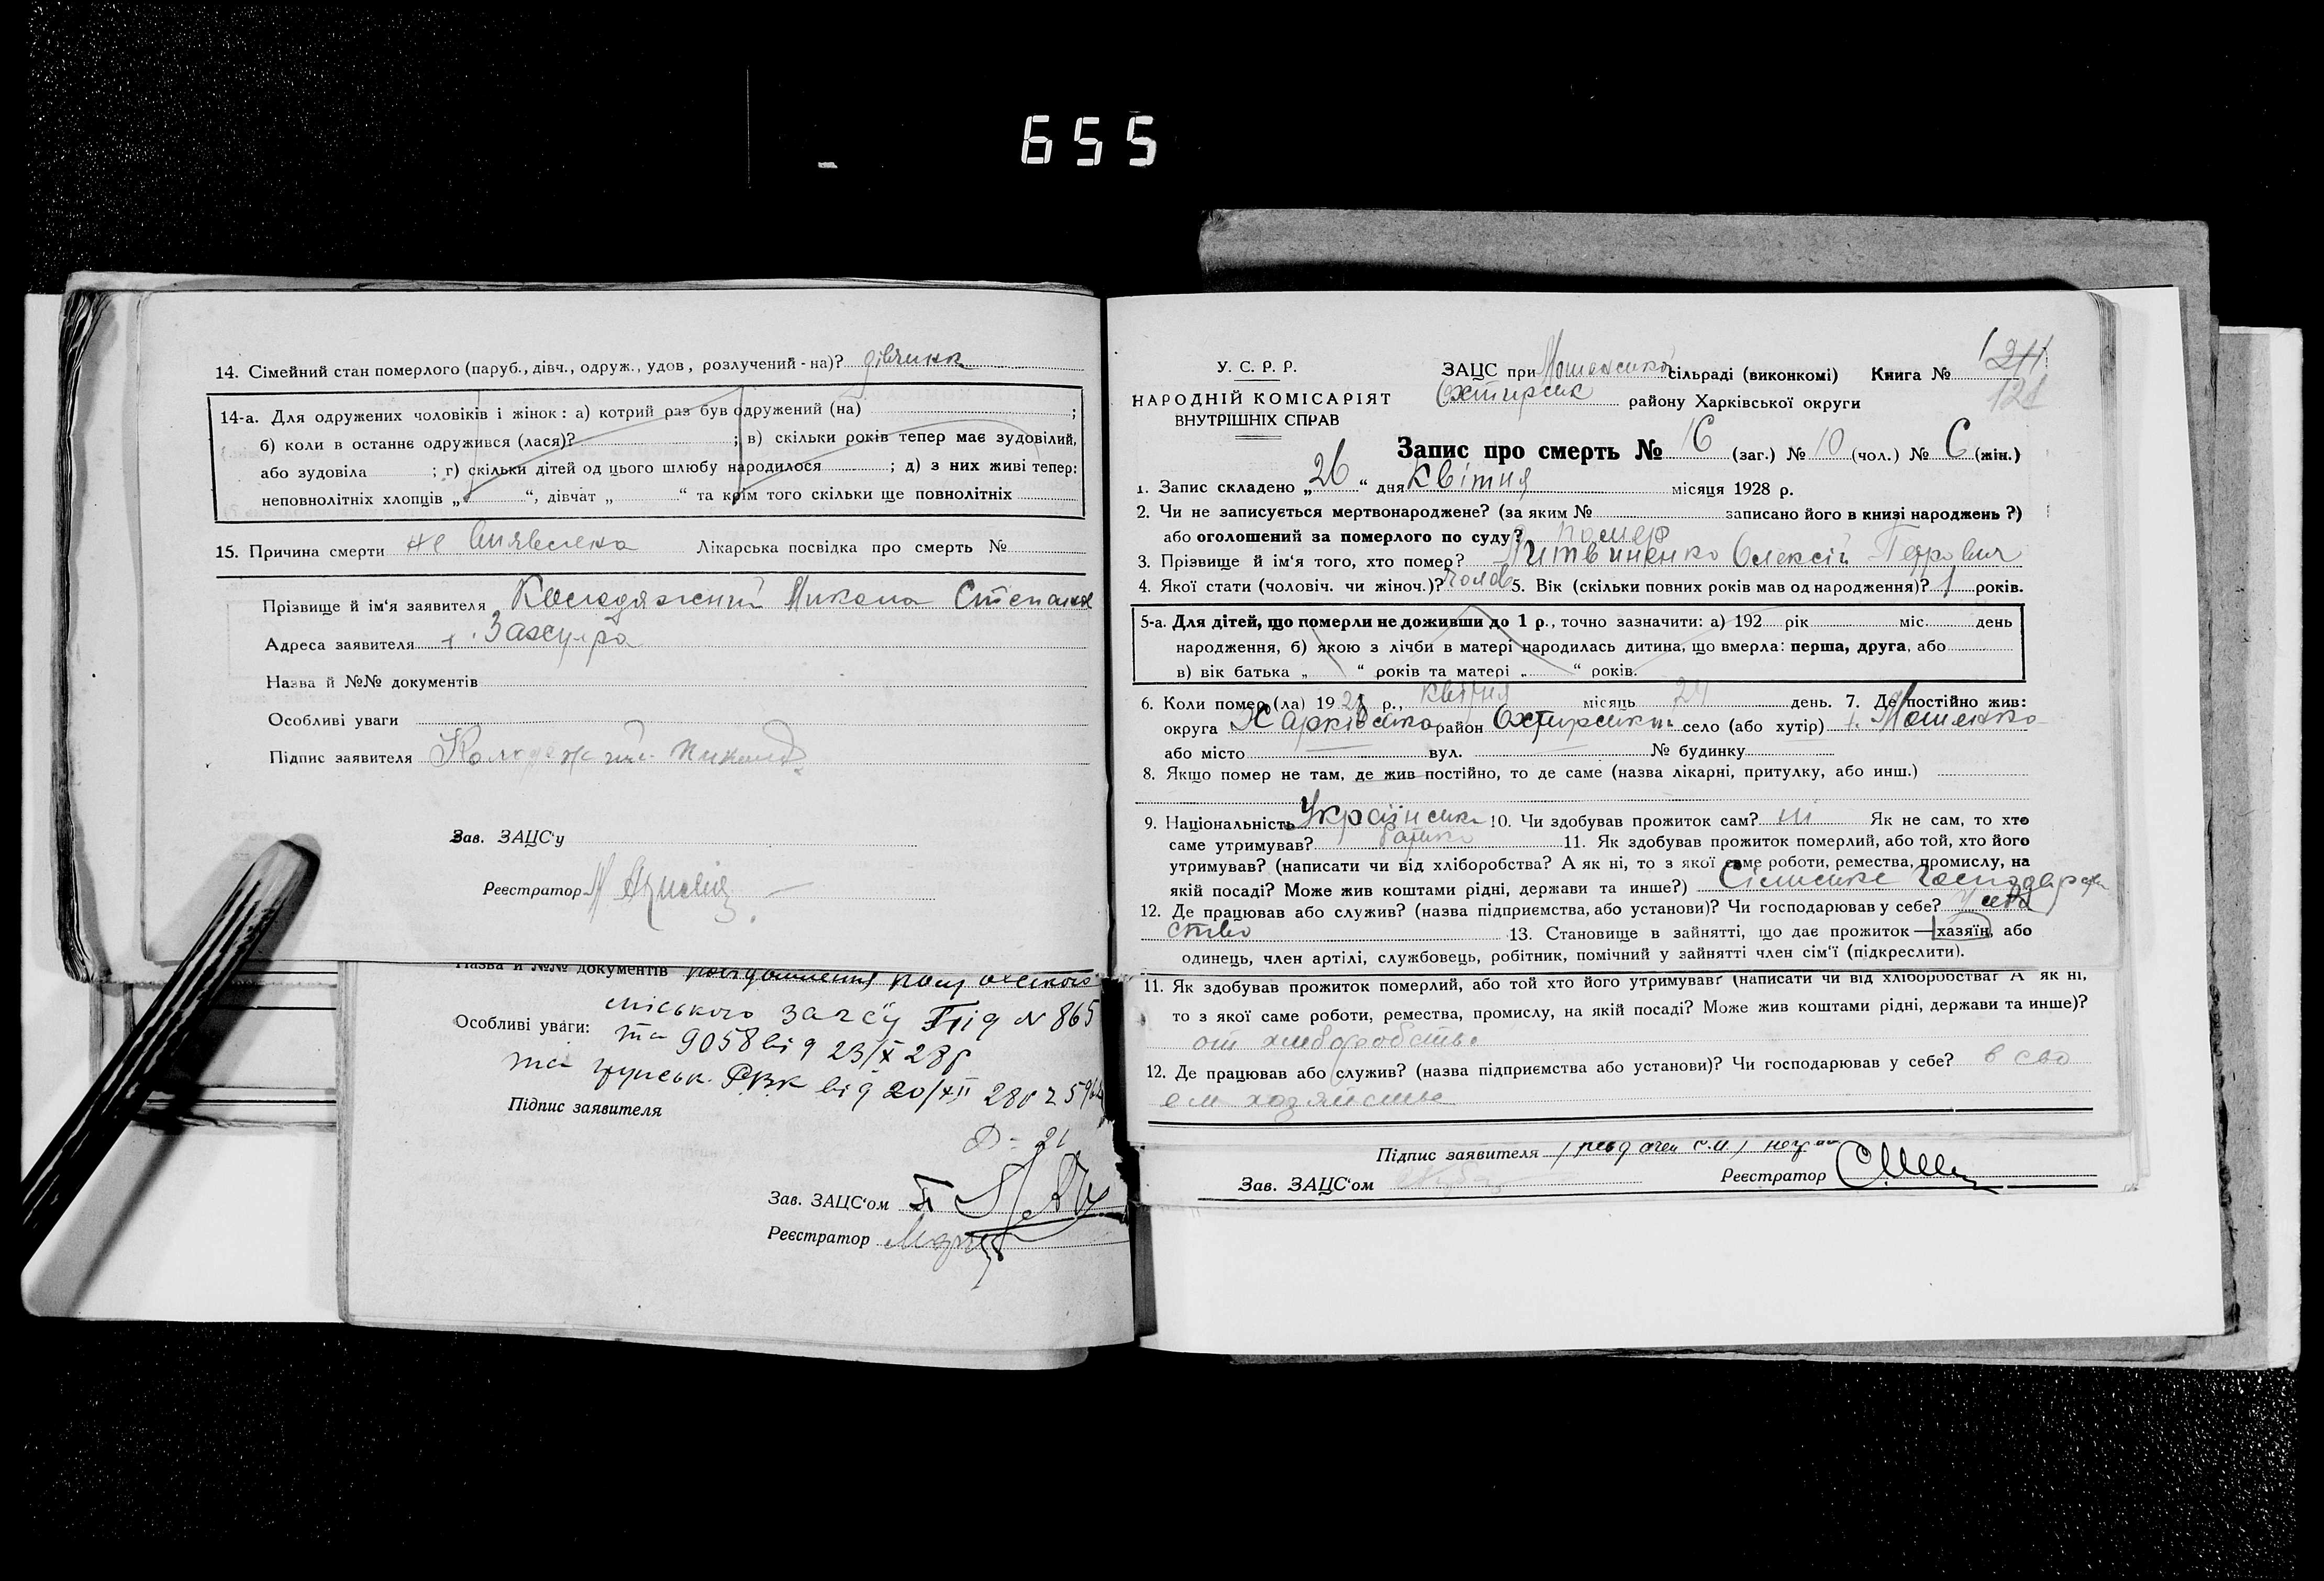 655
14. Сімейний стан померлого (паруб., дівч., одруж., удов, розлучений-на)? дівчина
14-а. Для одружених чоловіків і жінок: а) котрий раз був одружений (на) ;
б) коли в останнє одружився (лася)? ; в) скільки років тепер має зудовілий,
або зудовіла ; г) скільки дітей од цього шлюбу народилося ; д) з них живі тепер:
неповнолітніх хлопців „ “, дівчат „ “ та крім того скільки ще повнолітніх
15. Причина смерти не виявлена Лікарська посвідка про смерть №
Прізвище й ім'я заявителя Микола
Адреса заявителя
Назва й №№ документів
Особливі уваги
Підпис заявителя
Зав. ЗАЦС'у
Реєстратор
Назва й №№ документів
міського
Особливі уваги: № 865
та 9058 від 23/X 28р
РВК від 20/XII
Підпис заявителя
Зав. ЗАЦС'ом
Реєстратор
У. С. Р. Р.
НАРОДНІЙ КОМІСАРІЯТ
ВНУТРІШНІХ СПРАВ
ЗАЦС при сільраді (виконкомі) Книга №
121
Охтирськ району Харківської округи
Запис про смерть № 16 (заг.) № 10 (чол.) № 6 (жін.)
1. Запис складено „26“ дня Квітня місяця 1928 р.
2. Чи не записується мертвонароджене? (за яким № записано його в книзі народжень?)
або оголошений за померлого по суду? помер
3. Прізвище й ім'я того, хто помер? Литвиненко Олексій Петрович
4. Якої стати (чоловіч. чи жіноч.)? чолов 5. Вік (скільки повних років мав од народження)? 1 років.
5-а. Для дітей, що померли не доживши до 1 р., точно зазначити: а) 192 рік міс. день
народження, б) якою з лічби в матері народилась дитина, що вмерла: перша, друга, або
в) вік батька „ “ років та матері „ “ років.
6. Коли помер (ла) 1928 р., квітня місяць 24 день. 7. Де постійно жив:
округа Харківська район Охтирський село (або хутір)
або місто вул. № будинку
8. Якщо помер не там, де жив постійно, то де саме (назва лікарні, притулку, або инш.)
9. Національність Українська 10. Чи здобував прожиток сам? ні Як не сам, то хто
саме утримував? батько 11. Як здобував прожиток померлий, або той, хто його
утримував? (написати чи від хліборобства? А як ні, то з якої саме роботи, ремества, промислу, на
якій посаді? Може жив коштами рідні, держави та инше?) Сільське господар
12. Де працював або служив? (назва підприємства, або установи)? Чи господарював у себе? У себе
ство 13. Становище в зайнятті, що дає прожиток — хазяїн, або
одинець, член артілі, службовець, робітник, помічний у зайнятті член сім'ї (підкреслити).
11. Як здобував прожиток померлий, або той хто його утримував? (написати чи від хліборобства? А як ні,
то з якої саме роботи, ремества, промислу, на якій посаді? Може жив коштами рідні, держави та инше?)
от хлеборобства
12. Де працював або служив? (назва підприємства або установи)? Чи господарював у себе? в сво
ем хозяйстве
Підпис заявителя
Зав. ЗАЦС'ом Реєстратор